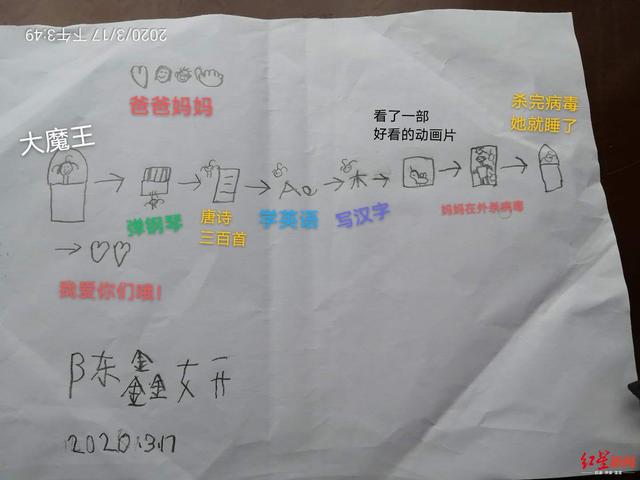 2020/3/17 下午3:49
爸爸妈妈
大魔王
看了一部
好看的动画片
杀完病毒
她就睡了
Aa
木
弹钢琴
唐诗
三百首
学英语
写汉字
妈妈在外杀病毒
我爱你们哦！
陈鑫妍
2020.3.17
红星新闻